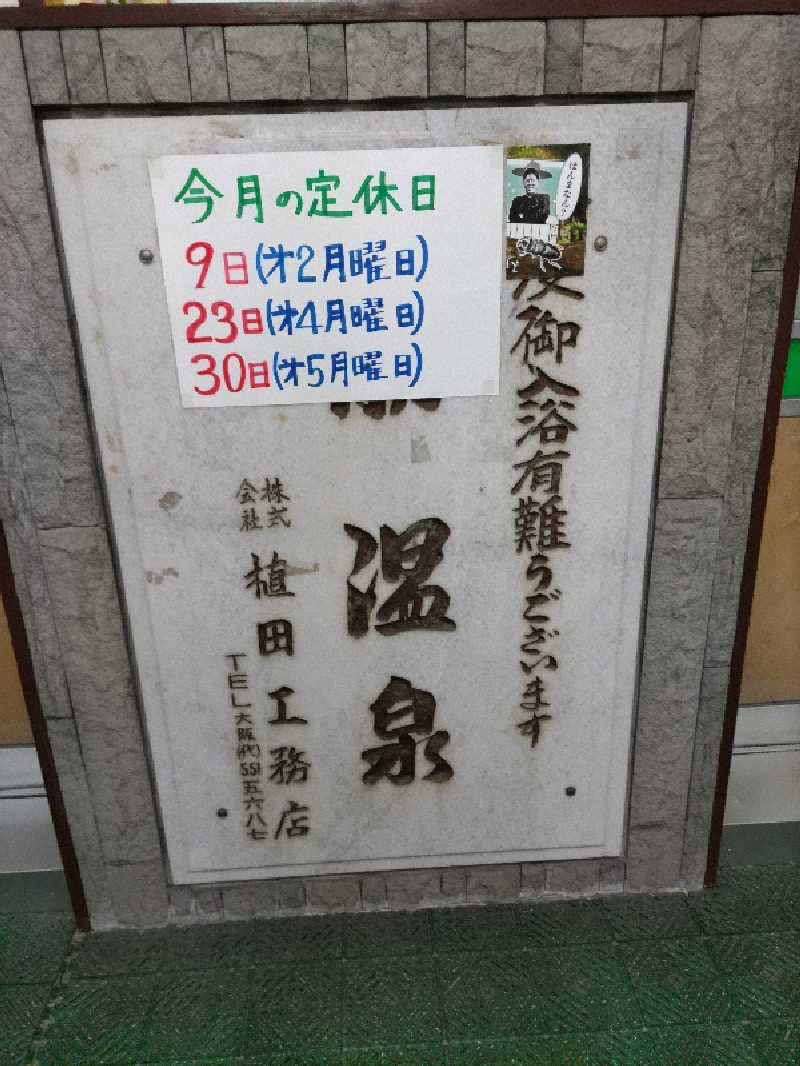 今月の定休日
9日(才2月曜日)
23日(才4月曜日)
30日(才5月曜日)
ほんまなん?
御入浴有難うございます
温泉
株式会社 植田工務店
TEL大阪(代)551五六八七